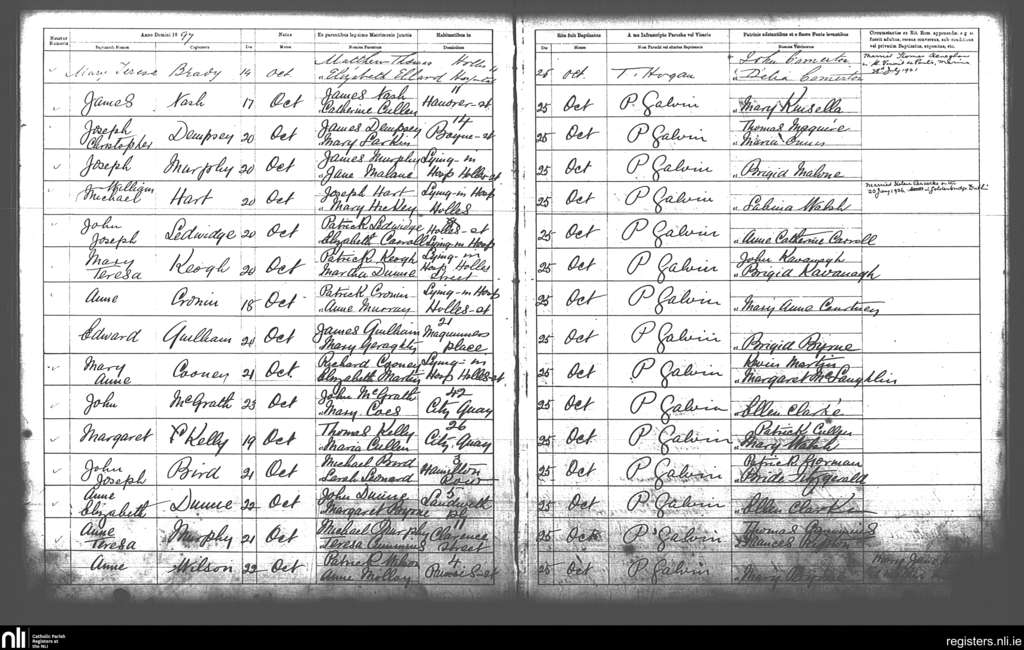 Anno Domini 1897
Natus
Ex parentibus legitimo Matrimonio junctis
Habitantibus in
Rite fuit Baptizatus
A me Infrascripto Parocho vel Vicario
Patrinis adstantibus et e Sacro Fonte levantibus
Baptismi Nomen
Cognomen
Die
Mense
Nomina Parentum
Domicilium
Die
Mense
Nomen Parochi vel alterius Baptizantis
Nomina Patrinorum
Mary Teresa Brady 14 Oct Matthew Thomas Holles st 25 Oct T. Hogan John Comerton
" Elizabeth Ellard Hospital " Delia Comerton
James Nash 17 Oct James Nash 11 25 Oct P Galvin
Catherine Cullen Hanover-st " Mary Kinsella
Joseph Dempsey 20 Oct James Dempsey 14 25 Oct P Galvin Thomas Maguire
Christopher Mary Larkin Boyne-st " Maria
Joseph Murphy 20 Oct James Murphy Lying-in 25 Oct P Galvin
" Jane Malone Hosp Holles-st " Brigid Malone
William Hart 20 Oct Joseph Hart Lying-in Hosp 25 Oct P Galvin
Michael " Mary Hickey Holles " Sabina Walsh
John Ledwidge 20 Oct Patrick Ledwidge Holles-st 25 Oct P Galvin
Joseph Elizabeth Carroll Lying-in Hosp " Anne Catherine Carroll
Mary Keogh 20 Oct Patrick Keogh Lying-in 25 Oct P Galvin John Kavanagh
Teresa Martha Dunne Hosp Holles Street Brigid Kavanagh
Anne Cronin 18 Oct Patrick Cronin Lying-in Hosp 25 Oct P Galvin
" Anne Murray Holles-st " Mary Anne Courtney
Edward Quilliam 20 Oct James Quilliam 21 25 Oct P Galvin
Mary Geraghty Place " Brigid Byrne
Mary Cooney 21 Oct Richard Cooney Lying-in 25 Oct P Galvin Kevin Martin
Anne Elizabeth Martin Hosp Holles-st " Margaret McLaughlin
John McGrath 23 Oct John McGrath 42 25 Oct P Galvin
" Mary Coes City Quay " Ellen Clarke
Margaret Kelly 19 Oct Thomas Kelly 26 25 Oct P Galvin Patrick Cullen
" Maria Cullen City Quay " Mary Walsh
John Bird 21 Oct Michael Bird 3 25 Oct P Galvin Patrick Gorman
Joseph Sarah Leonard Hamilton Row " Bride Fitzgerald
Anne Dunne 22 Oct John Dunne 5 25 Oct P Galvin
Elizabeth Margaret Sandwith " Ellen Clarke
Anne Murphy 21 Oct Michael Murphy 11 25 Oct P Galvin Thomas
Teresa Teresa Cummins Clarence Street Frances
Anne Wilson 22 Oct Patrick Wilson 4 25 Oct P Galvin
Anne Molloy " Mary
nli
Catholic Parish
Registers at
the NLI
registers.nli.ie